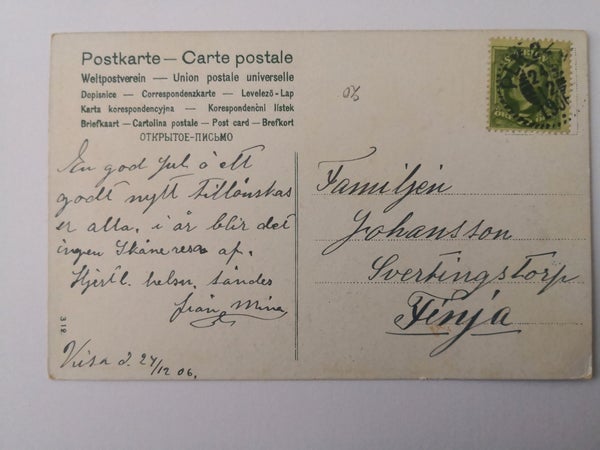 Postkarte — Carte postale
Weltpostverein — Union postale universelle
Dopisnice — Correspondenzkarte — Levelező-Lap
Karta korespondencyjna — Korespondenční lístek
Briefkaart — Cartolina postale — Post card — Brefkort
ОТКРЫТОЕ-ПИСЬМО
En god Jul o ett
godt nytt tillönskas
er alla, i år blir det
ingen Skåneresa af.
Hjertl. helsn. sändes
från Mina
d. 24/12 06.
312
Familjen
Johansson
Svertingstorp
Finja